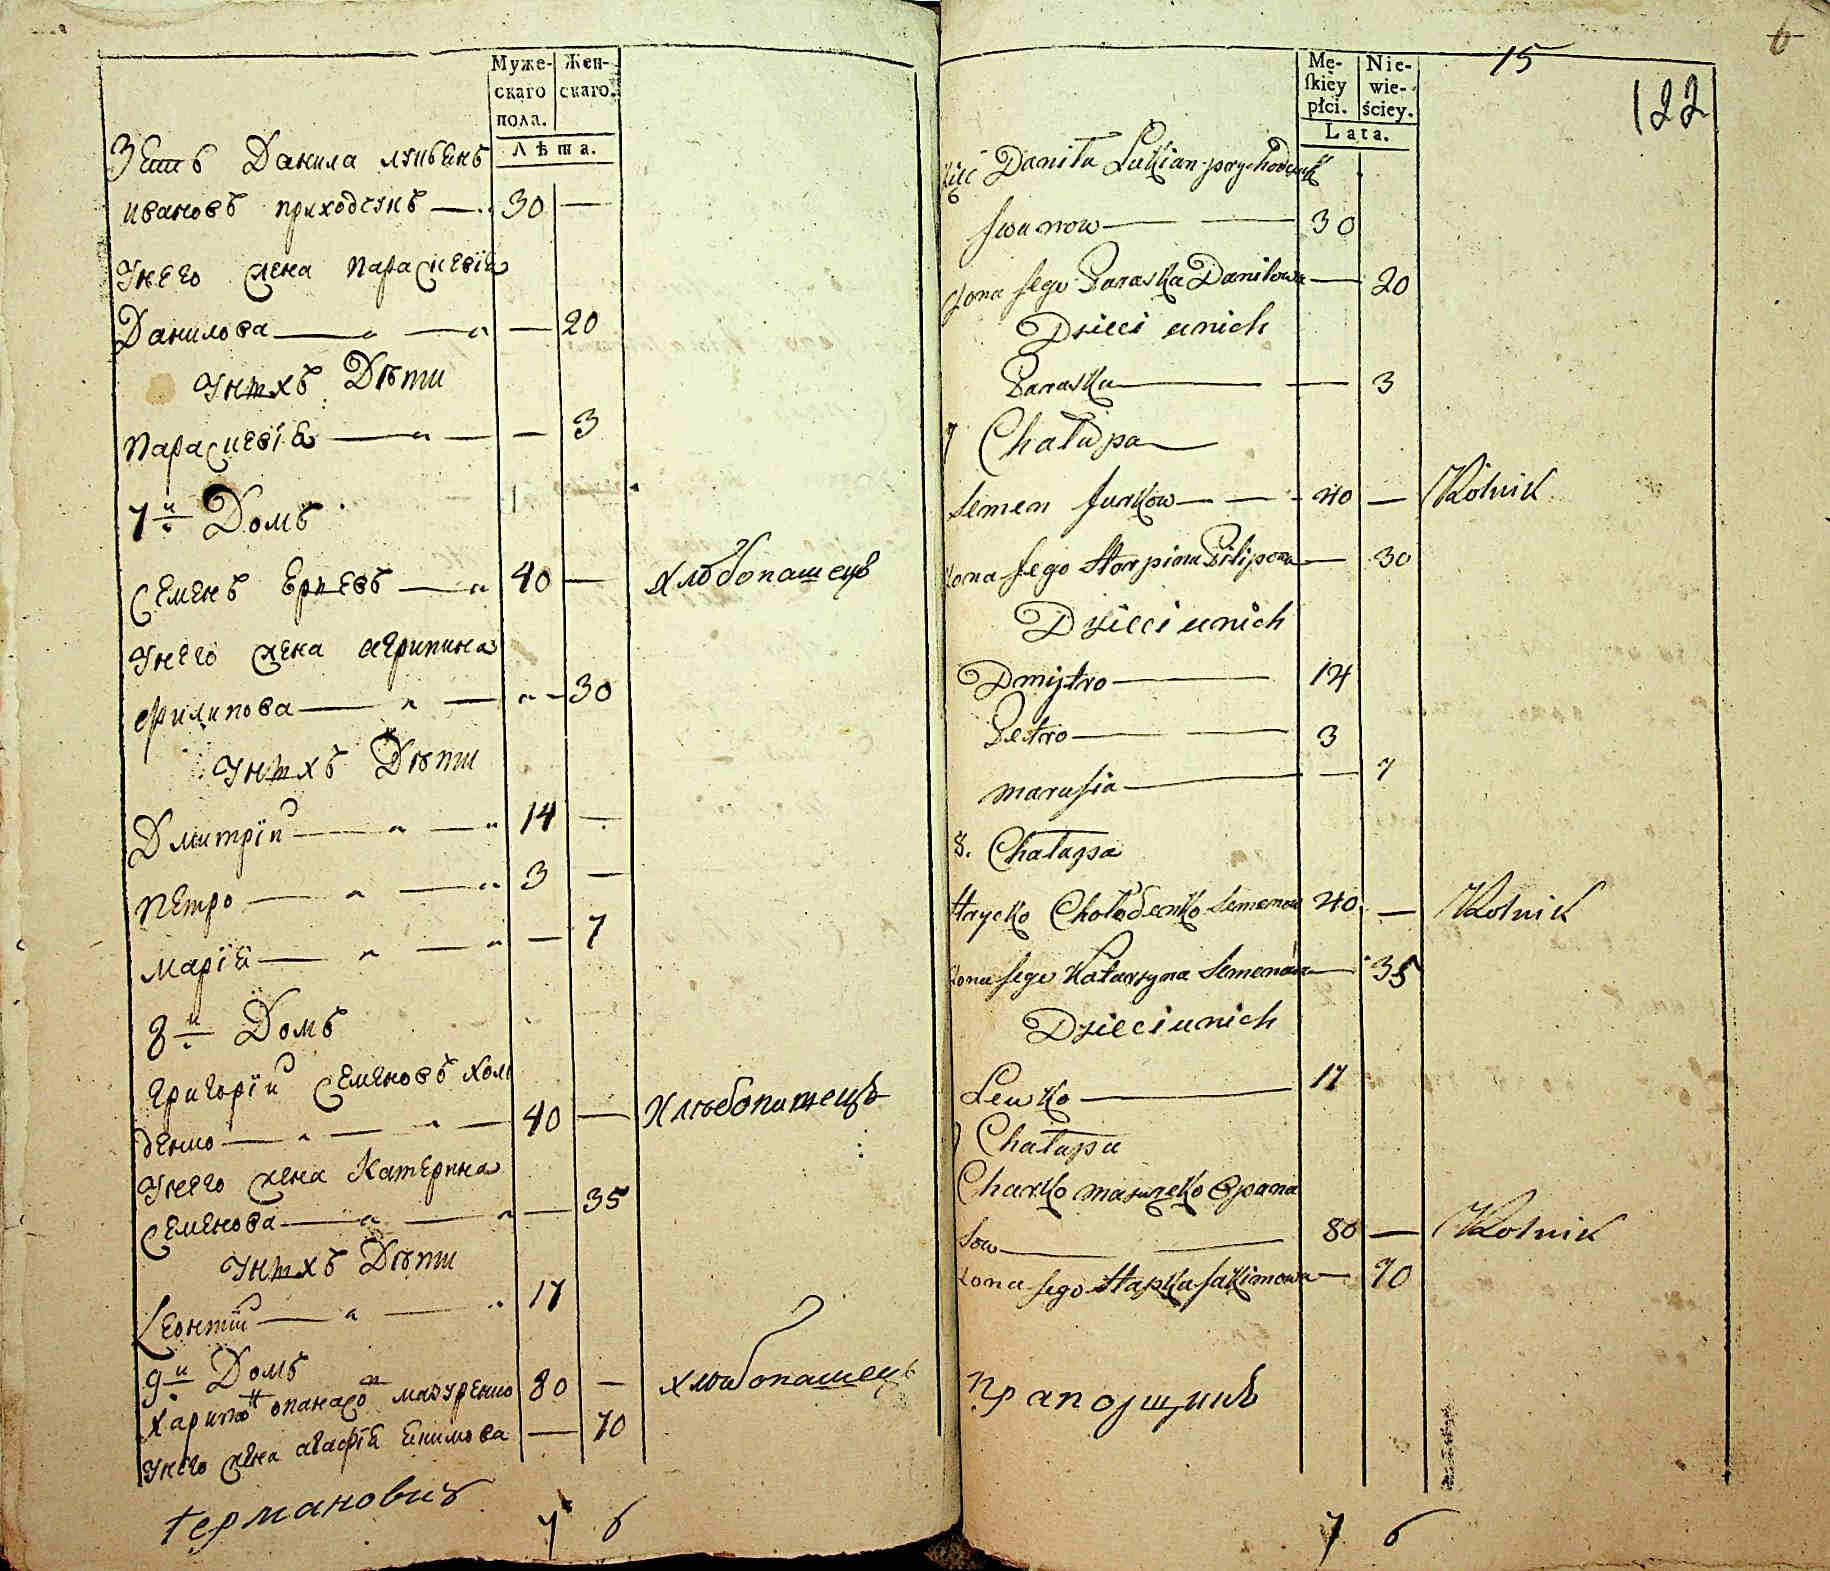 Муже- Жен-
скаго скаго.
пола.
Лѣта.
Зеть Данила лукьянъ
ивановъ приходкунъ — 30 —
Унего жена параскевія
Данилова — — 20
Унихъ Дѣти
параскевія — — 3
7й Домъ
Семенъ Еркевъ — 40 — хлѣбопашецъ
Унего жена агрипина
филипова — — 30
Унихъ Дѣти
Дмитрій — 14 —
петро — 3 —
марія — — 7
8й Домъ
григорій Семеновъ холо
денко — 40 — Хлѣбопашецъ
Унего жена Катерина
Семенова — — 35
Унихъ Дѣти
Леонтій — 17
9й Домъ
Харитонъ опанасовъ мазуренко 80 — хлѣбопашецъ
Унего жена агафія Екимова — 70
Германовичъ
7 6
6
15
122
Mę- Nie-
ſkiey wie-
płci. ściey.
Lata.
Zięć Daniła Lukian prychodczuk
Jwanow — 30
Żona Jego Paraska Daniłowa — 20
Dzieci unich
Paraska — — 3
7 Chałupa
Semen Jurkow — 40 — Rolnik
Żona Jego Harpina Pilipowa — 30
Dzieci unich
Dmytro — 14
Petro — 3
Marusia — — 7
8. Chałupa
Hrycko Chołodenko Semenow 40 — Rolnik
Żona Jego Katarzyna Semenowa — 35
Dzieci unich
Lewko — 17
9 Chałupa
Charko Mazurenko Opana
sow — 80 — Rolnik
Żona Jego Hapka Jakimowa — 70
прапорщикъ
7 6